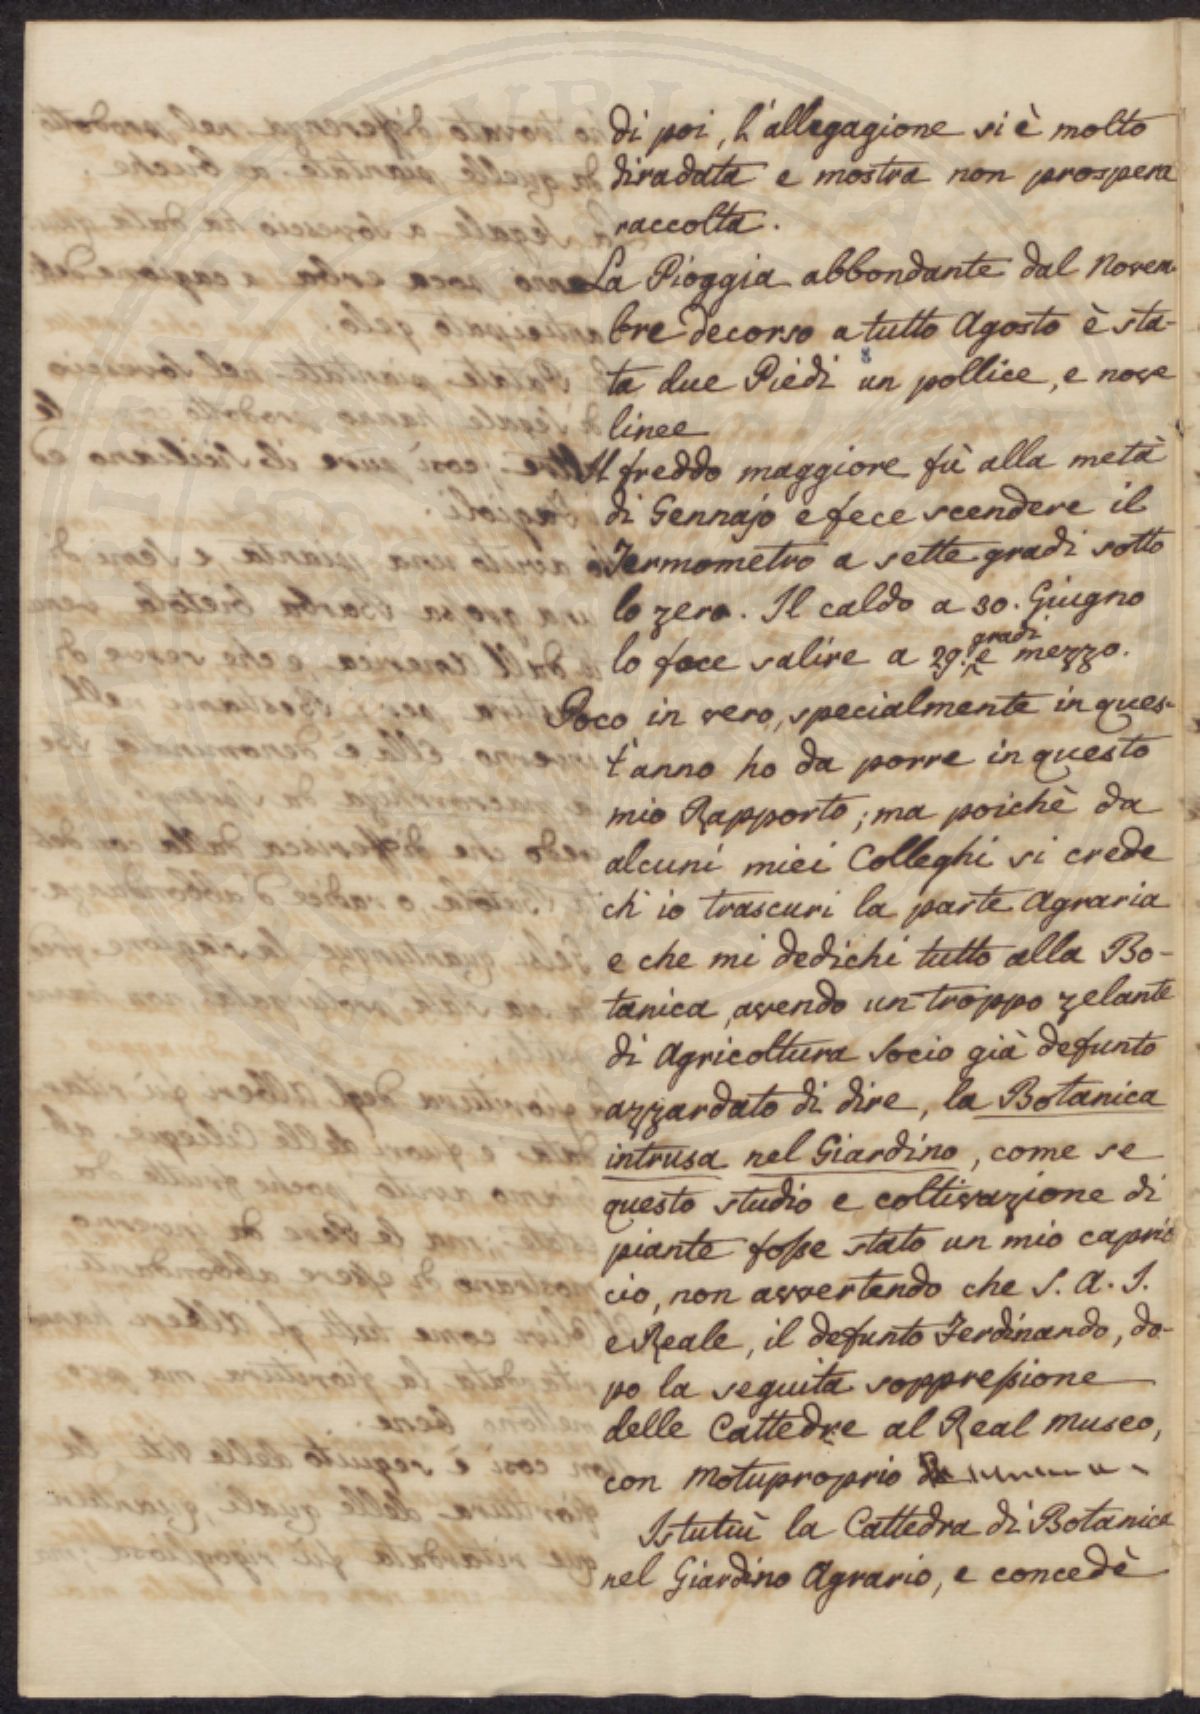 di poi, l'allegagione si è molto
diradata e mostra non prospera
raccolta.
La Pioggia abbondante dal Novem-
bre decorso a tutto Agosto è sta-
ta due Piedi un pollice, e nove
linee
Il freddo maggiore fù alla metà
di Gennajo e fece scendere il
Termometro a sette gradi sotto
lo zero. Il caldo a 30. Giugno
lo fece salire a 29. gradi e mezzo.
Poco in vero, specialmente in ques-
t'anno ho da porre in questo
mio Rapporto; ma poichè da
alcuni miei Colleghi si crede
ch'io trascuri la parte Agraria
e che mi dedichi tutto alla Bo-
tanica, avendo un troppo zelante
di Agricoltura Socio già defunto
azzardato di dire, la Botanica
intrusa nel Giardino, come se
questo studio e coltivazione di
piante fosse stato un mio capric
cio, non avvertendo che S. A. I.
e Reale, il defunto Ferdinando, do-
po la seguita soppressione
delle Cattedre al Real Museo,
con Motuproprio
Istutuì la Cattedra di Botanica
nel Giardino Agrario, e concedè